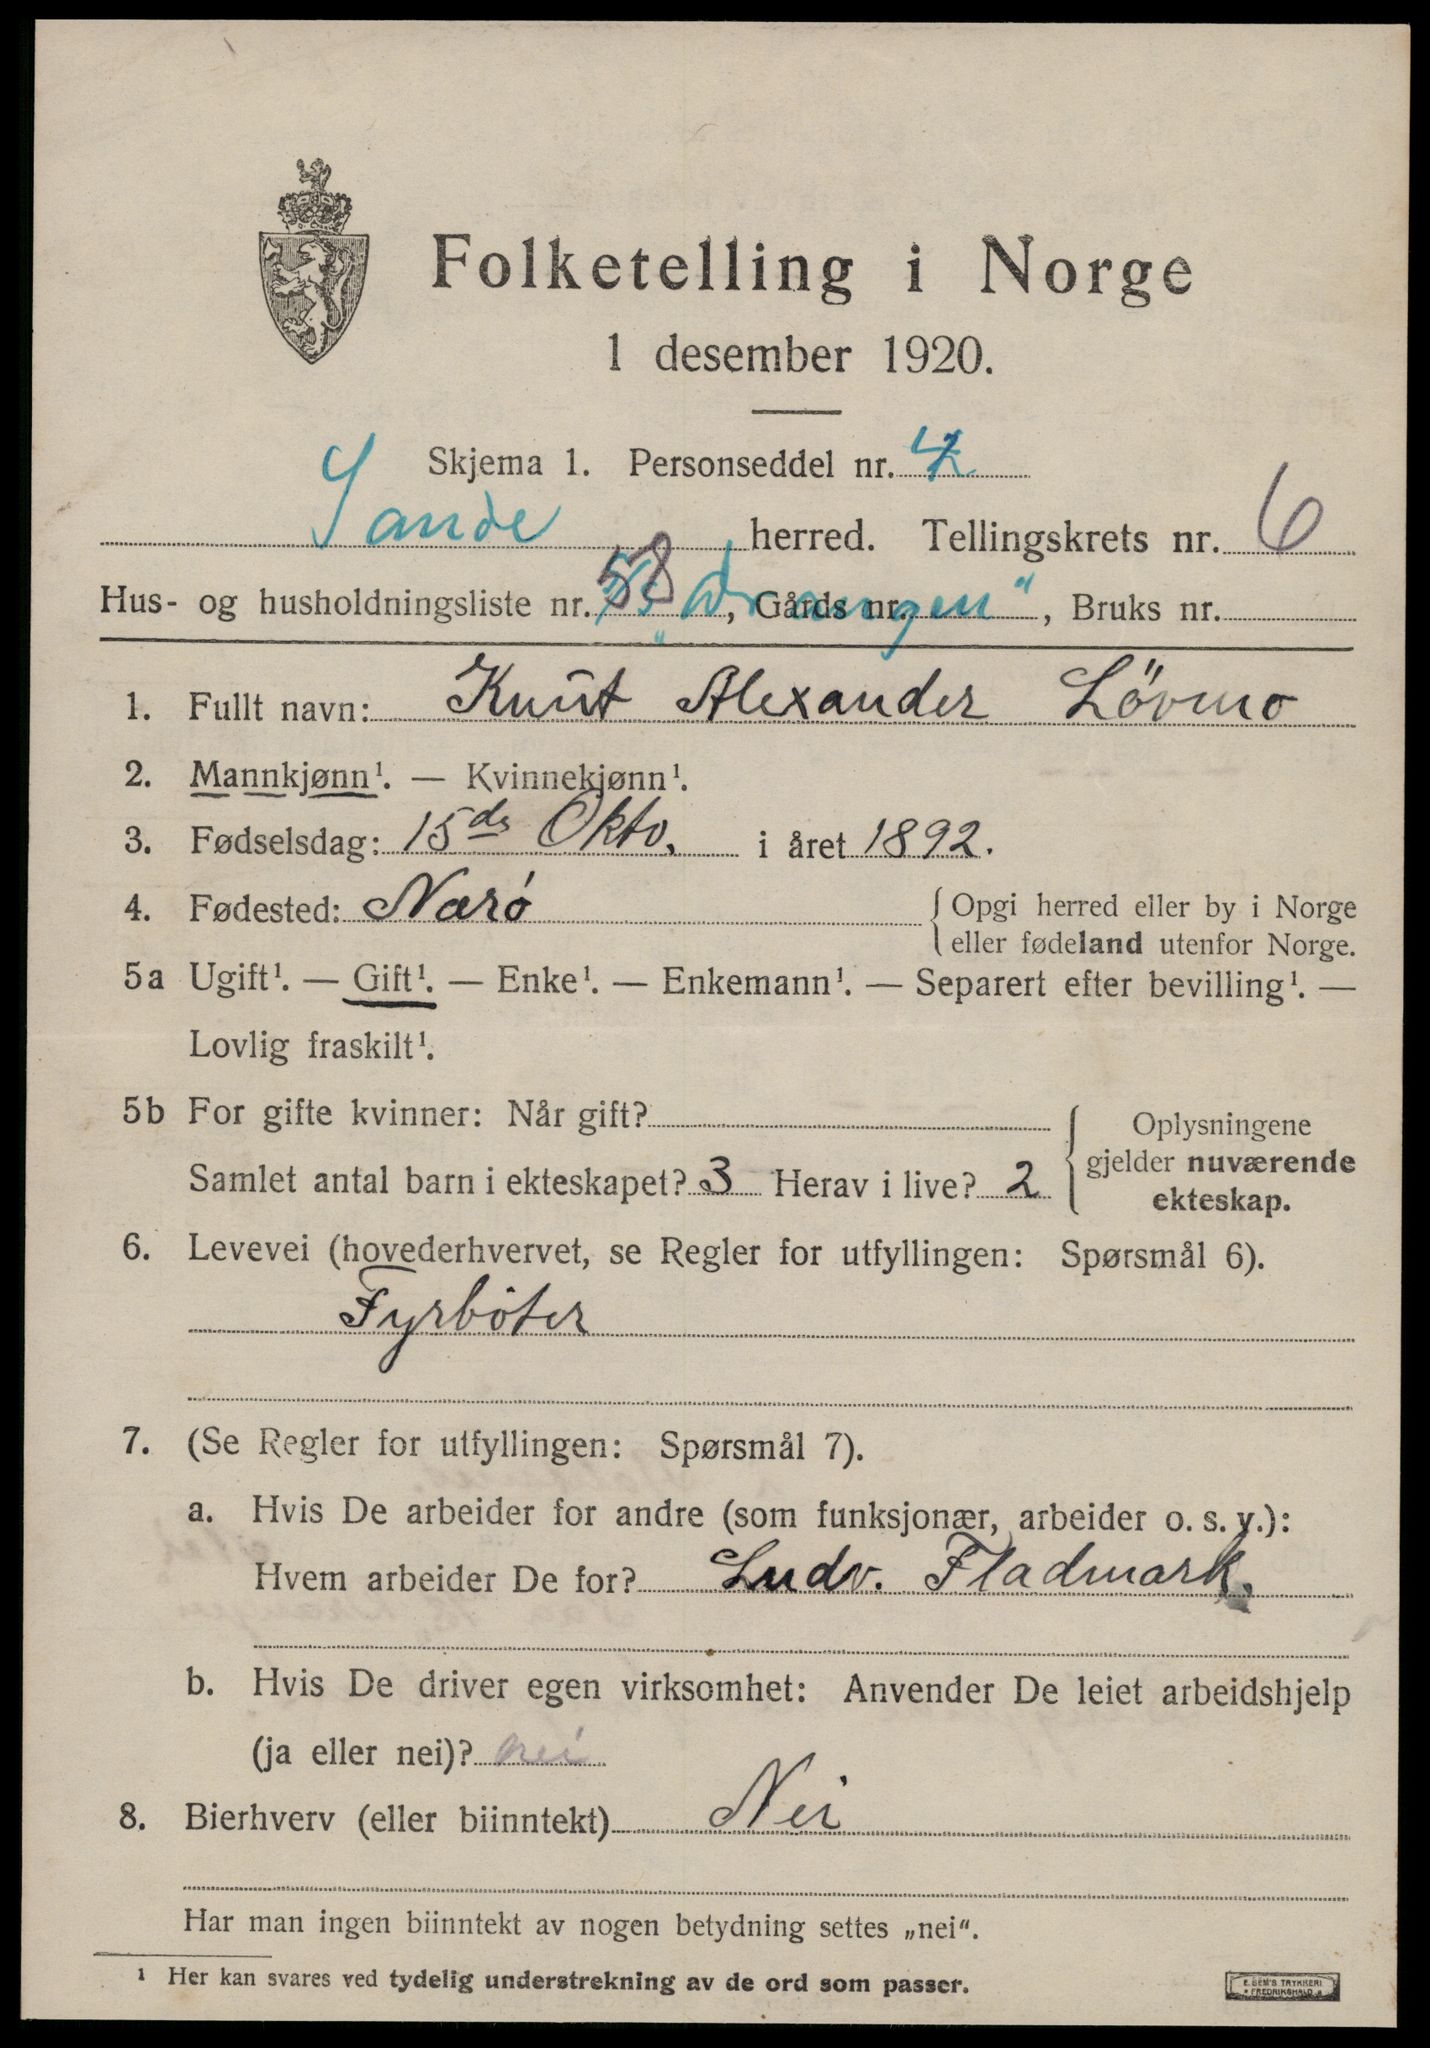 Folketelling i Norge
1 desember 1920.
Skjema 1. Personseddel nr. 4
Sande herred. Tellingskrets nr. 6
Hus- og husholdningsliste nr. 58, Gårds nr. , Bruks nr.
1. Fullt navn: Knut Alexander Lövmo
2. Mannkjønn¹. — Kvinnekjønn¹.
3. Fødselsdag: 15de Okto. i året 1892.
4. Fødested: Nærö { Opgi herred eller by i Norge
eller fødeland utenfor Norge.
5a Ugift¹. — Gift¹. — Enke¹. — Enkemann¹. — Separert efter bevilling¹. —
Lovlig fraskilt¹.
5b For gifte kvinner: Når gift? { Oplysningene
gjelder nuværende
Samlet antal barn i ekteskapet? 3 Herav i live? 2
ekteskap.
6. Levevei (hovederhvervet, se Regler for utfyllingen: Spørsmål 6).
Fyrböter
7. (Se Regler for utfyllingen: Spørsmål 7).
a. Hvis De arbeider for andre (som funksjonær, arbeider o. s. v.):
Hvem arbeider De for? Ludv. Fladmark.
b. Hvis De driver egen virksomhet: Anvender De leiet arbeidshjelp
(ja eller nei)? nei
8. Bierhverv (eller biinntekt) Nei
Har man ingen biinntekt av nogen betydning settes „nei“.
¹ Her kan svares ved tydelig understrekning av de ord som passer.
E. SEM'S TRYKKERI
FREDRIKSHALD